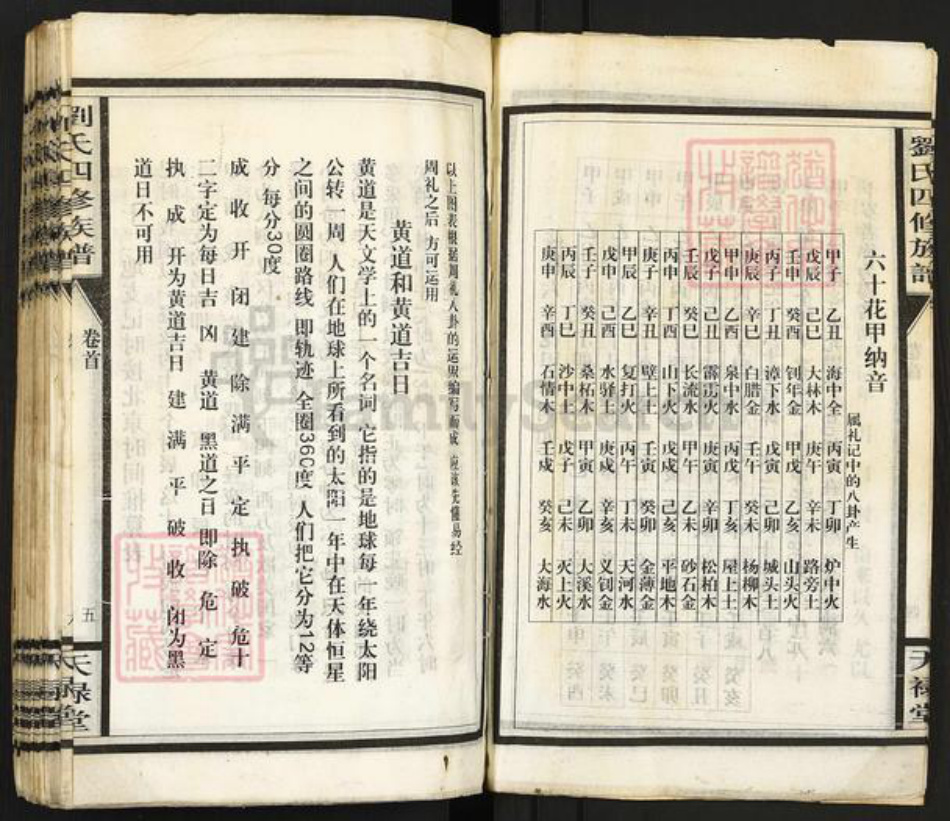 劉氏四修族譜
天禄堂
六十花甲纳音
属礼记中的八卦产生
甲子 乙丑 海中全 丙寅 丁卯 炉中火
戊辰 己巳 大林木 庚午 辛未 路旁土
壬申 癸酉 钊年金 甲戌 乙亥 山头火
丙子 丁丑 漳下水 戊寅 己卯 城头土
庚辰 辛巳 白腊金 壬午 癸未 杨柳木
甲申 乙酉 泉中水 丙戌 丁亥 屋上土
戊子 己丑 霹雳火 庚寅 辛卯 松柏木
壬辰 癸巳 长流水 甲午 乙未 砂石金
丙申 丁酉 山下火 戊戌 己亥 平地木
庚子 辛丑 壁上土 壬寅 癸卯 金薄金
甲辰 乙巳 复打火 丙午 丁未 天河水
戊申 己酉 水驿土 庚戌 辛亥 义钊金
壬子 癸丑 桑柘木 甲寅 乙卯 大溪水
丙辰 丁巳 沙中土 戊子 己未 灭上火
庚申 辛酉 石情木 壬戌 癸亥 大海水
以上图表根据周礼八卦的运照编写而成 应该先懂易经
周礼之后 方可运用
黄道和黄道吉日
黄道是天文学上的一个名词 它指的是地球每一年绕太阳
公转一周 人们在地球上所看到的太阳一年中在天体恒星
之间的圆圈路线 即轨迹 全圈360度 人们把它分为12等
分 每分30度
成 收 开 闭 建 除 满 平 定 执 破 危十
二字定为每日吉 凶 黄道 黑道之日即除 危 定
执 成 开为黄道吉日 建 满 平 破 收 闭为黑
道日不可用
劉氏四修族谱
卷首
五
天禄堂